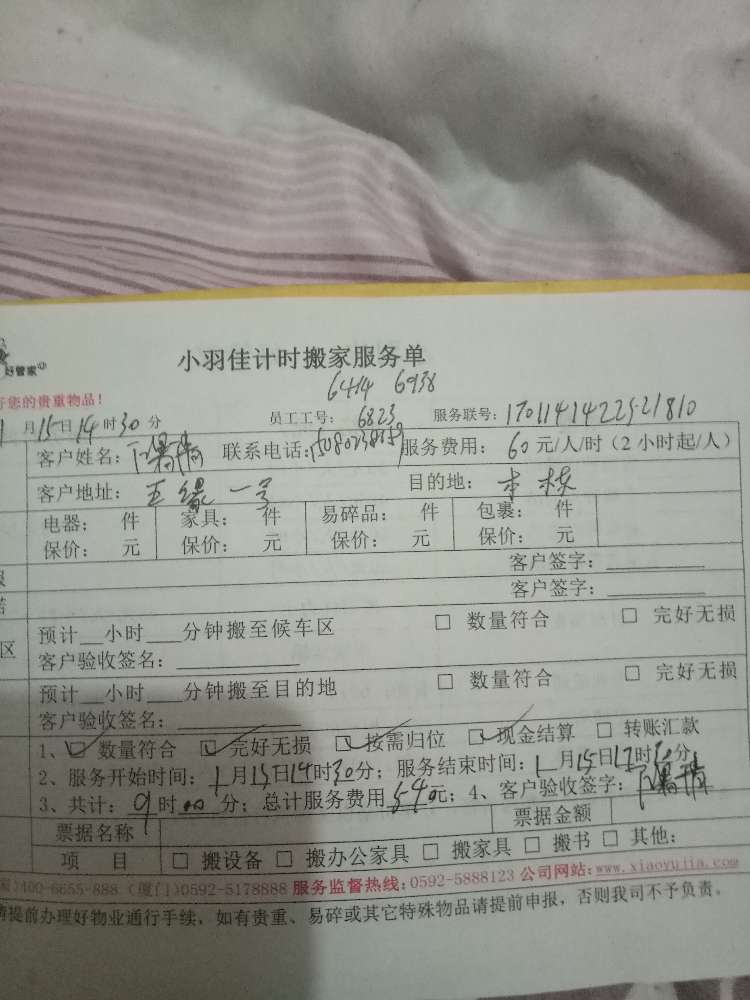 好管家
小羽佳计时搬家服务单
您的贵重物品！
6414 6938
1月15日14时30分 员工工号： 6823 服务联号：
客户姓名： 联系电话： 服务费用： 60元/人/时（2小时起/人）
客户地址： 五缘一号 目的地： 本栋
电器： 件 家具： 件 易碎品： 件 包裹： 件
保价： 元 保价： 元 保价： 元 保价： 元
客户签字：
客户签字：
预计__小时___分钟搬至候车区 □ 数量符合 □ 完好无损
区
客户验收签名：
预计__小时___分钟搬至目的地 □ 数量符合 □ 完好无损
客户验收签名：
1、☑ 数量符合 ☑ 完好无损 ☑ 按需归位 ☑ 现金结算 □ 转账汇款
2、服务开始时间：1月15日14时30分；服务结束时间：1月15日17时30分
3、共计：9时00分；总计服务费用540元；4、客户验收签字：
票据名称 票据金额
项 目 □ 搬设备 □ 搬办公家具 □ 搬家具 □ 搬书 □ 其他：
400-6655-888（厦门）0592-5178888 服务监督热线：0592-5888123 公司网站：www.xiaoyujia.com
提前办理好物业通行手续，如有贵重、易碎或其它特殊物品请提前申报，否则我司不予负责。